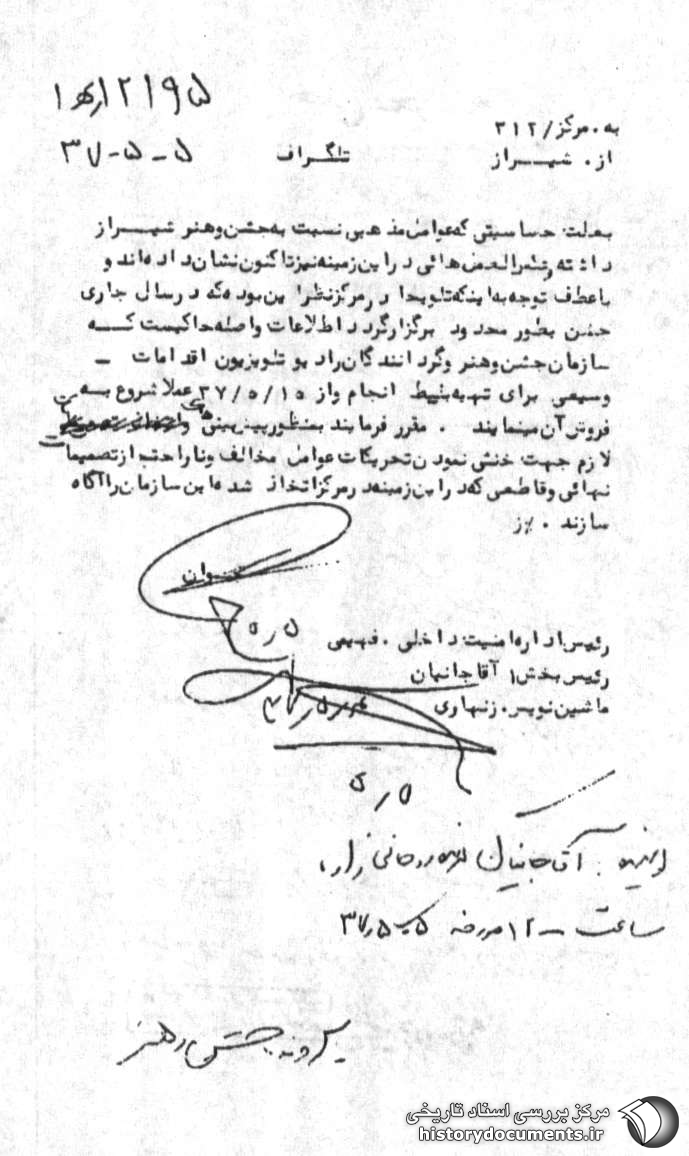 ۱۲۱۹۵/ه‍ ۱
به . مرکز/۳۱۲
از . شیراز تلگراف ۳۷-۵-۵
بعلت حساسیتی که عوامل مذهبی نسبت به جشن و هنر شیراز
داشته و عکس العمل هائی در این زمینه نیز تاکنون نشان داده اند و
با عطف توجه به اینکه تلویحا در مرکز نظر این بوده که در سال جاری
جشن بطور محدود برگزار گردد اطلاعات واصله حاکیست کــه
سازمان جشن و هنر و گردانندگان رادیو تلویزیون اقدامات ــ
وسیعی برای تهیه بلیط انجام و از ۳۷/۵/۱۵ عملا شروع بــه
فروش آن مینمایند . مقرر فرمایند بمنظور پیش بینی های
لازم جهت خنثی نمودن تحریکات عوامل مخالف و ناراحت از تصمیمات
نهائی و قاطعی که در این زمینه در مرکز اتخاذ شده این سازمان را آگاه
سازند . %ز
رئیس اداره امنیت داخلی .
رئیس بخش۱ آقاجانیان
ماشین نویس . زنهاری
۵/۵
۵/۵
آقاجانیان
ساعت ۱۲۰۰ مورخه ۳۷/۵/۵
پرونده جشن و هنر
مرکز بررسی اسناد تاریخی
historydocuments.ir